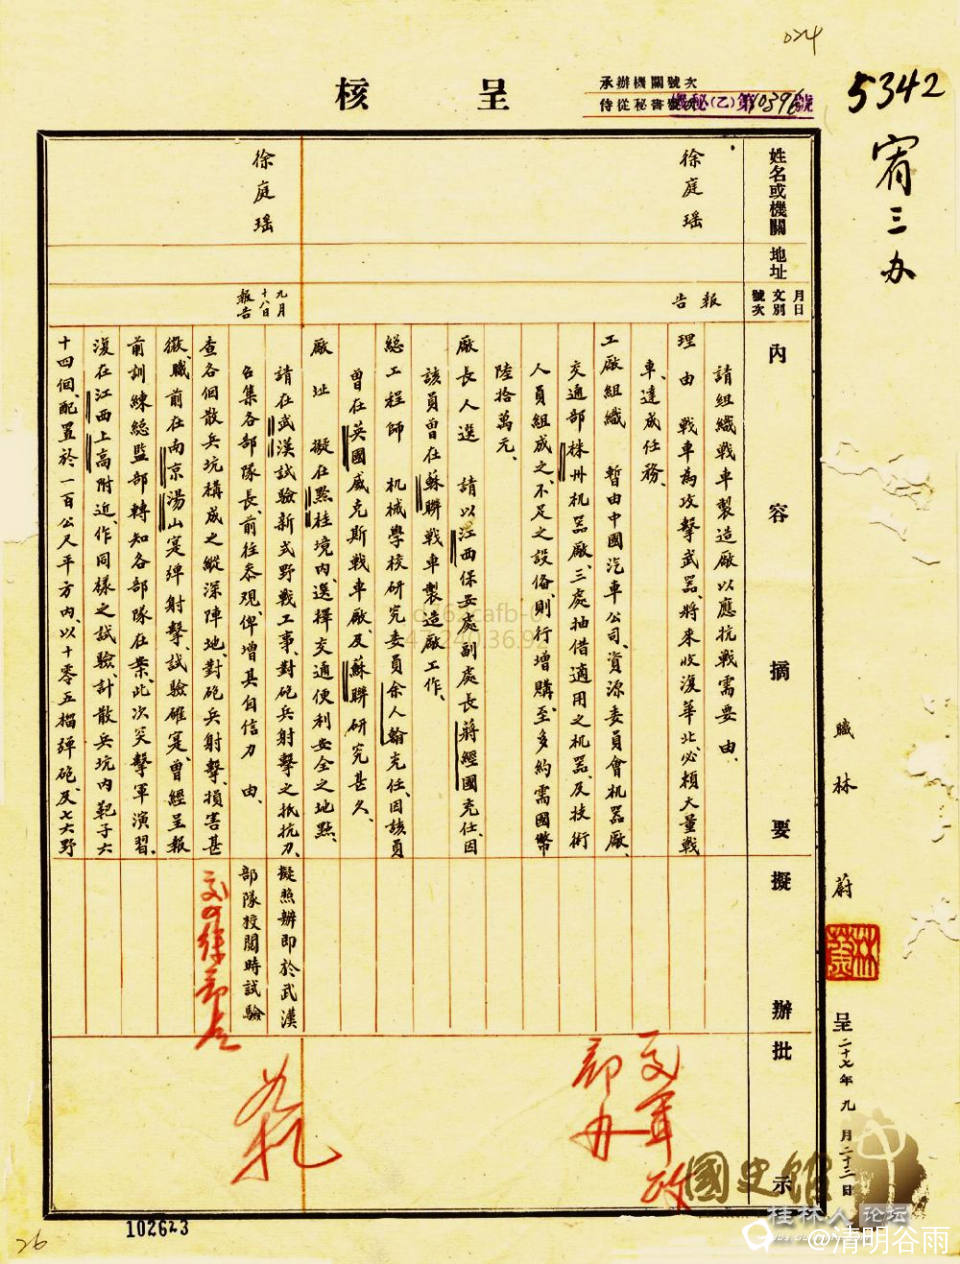 024
呈核
承辦機關號次
侍從秘書號次
機秘(乙)第10396號
5342
宥三办
姓名或機關
地址
月日
文別
號次
內容摘要
擬辦
批示
徐庭瑤
報告
請組織戰車製造廠以應抗戰需要 由、
理由 戰車為攻擊武器、將來收復華北、必賴大量戰
車、達成任務、
工廠組織 暫由中國汽車公司、資源委員會机器廠、
交通部株州机器廠、三處抽借適用之机器、及技術
人員組成之、不足之設備、則行增購、至多約需國幣
陸拾萬元、
廠長人選 請以江西保安處副處長蔣經國充任、因
該員曾在蘇聯戰車製造廠工作、
總工程師 机械學校研究委員余人翰充任、因該員
曾在英國威克斯戰車廠、及蘇聯研究甚久、
廠址 擬在黔桂境內、選擇交通便利安全之地點、
交軍政部办
徐庭瑤
九月十八日
報告
請在武漢試驗新式野戰工事、對砲兵射擊之抵抗力、
召集各部隊長、前往参观、俾增其自信力 由、
查各個散兵坑構成之縱深陣地、對砲兵射擊、損害甚
微、職前在南京湯山寔彈射擊、試驗確寔、曾經呈報
前訓練總監部轉知各部隊在案、此次突擊軍演習、
復在江西上高附近、作同樣之試驗、計散兵坑內靶子六
十四個、配置於一百公尺平方內、以十零五榴彈砲、及七六野
擬照辦即於武漢
部隊校閱時試驗
職 林蔚
林蔚
呈 二十七年九月二十三日
102623
26
國史館
桂林人论坛
@清明谷雨